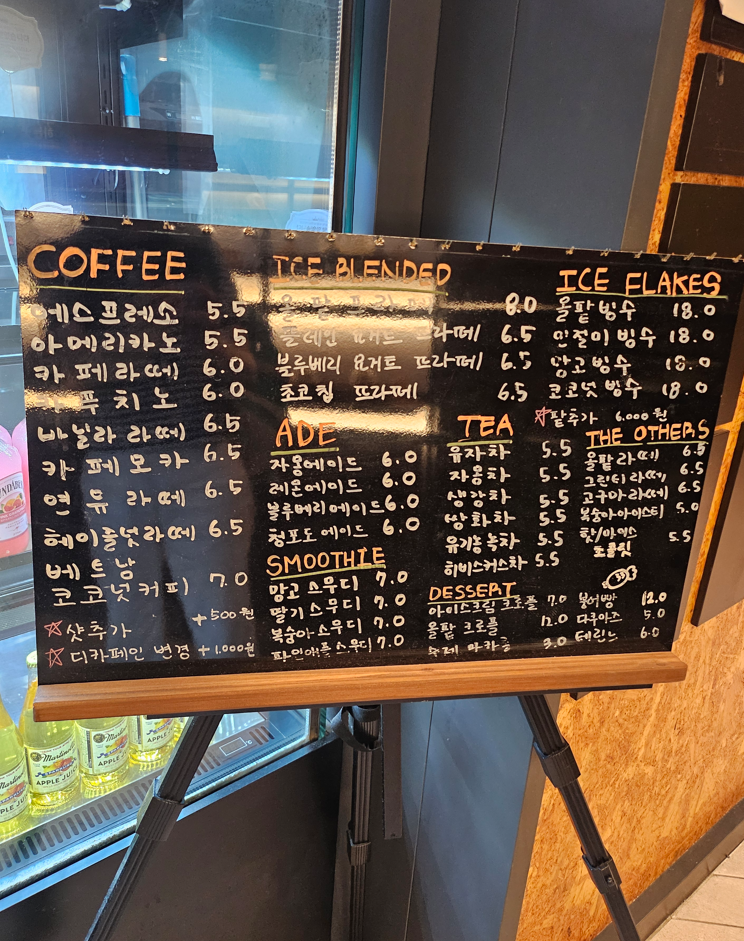 COFFEE
에스프레소 5.5
아메리카노 5.5
카페라떼 6.0
카푸치노 6.0
바닐라라떼 6.5
카페모카 6.5
연유라떼 6.5
헤이즐넛라떼 6.5
베트남
코코넛커피 7.0
☆ 샷추가 +500원
☆ 디카페인 변경 +1.000원
ICE BLENDED
올팥프라떼 8.0
플레인 요거트 프라떼 6.5
블루베리 요거트 프라떼 6.5
초코칩 프라떼 6.5
ADE
자몽에이드 6.0
레몬에이드 6.0
블루베리에이드 6.0
청포도에이드 6.0
SMOOTHIE
망고스무디 7.0
딸기스무디 7.0
복숭아스무디 7.0
파인애플스무디 7.0
ICE FLAKES
올팥빙수 18.0
인절미빙수 18.0
망고빙수 18.0
코코넛빙수 18.0
☆팥추가 6.000원
TEA
유자차 5.5
자몽차 5.5
생강차 5.5
쌍화차 5.5
유기농녹차 5.5
히비스커스차 5.5
THE OTHERS
올팥라떼 6.5
그린티라떼 6.5
고구마라떼 6.5
복숭아아이스티 5.0
핫/아이스
초콜릿 5.5
DESSERT
아이스크림 크로플 7.0
올팥 크로플 12.0
수제 마카롱 3.0
붕어빵 12.0
다쿠아즈 5.0
테린느 6.0
Martinelli's
APPLE JUICE